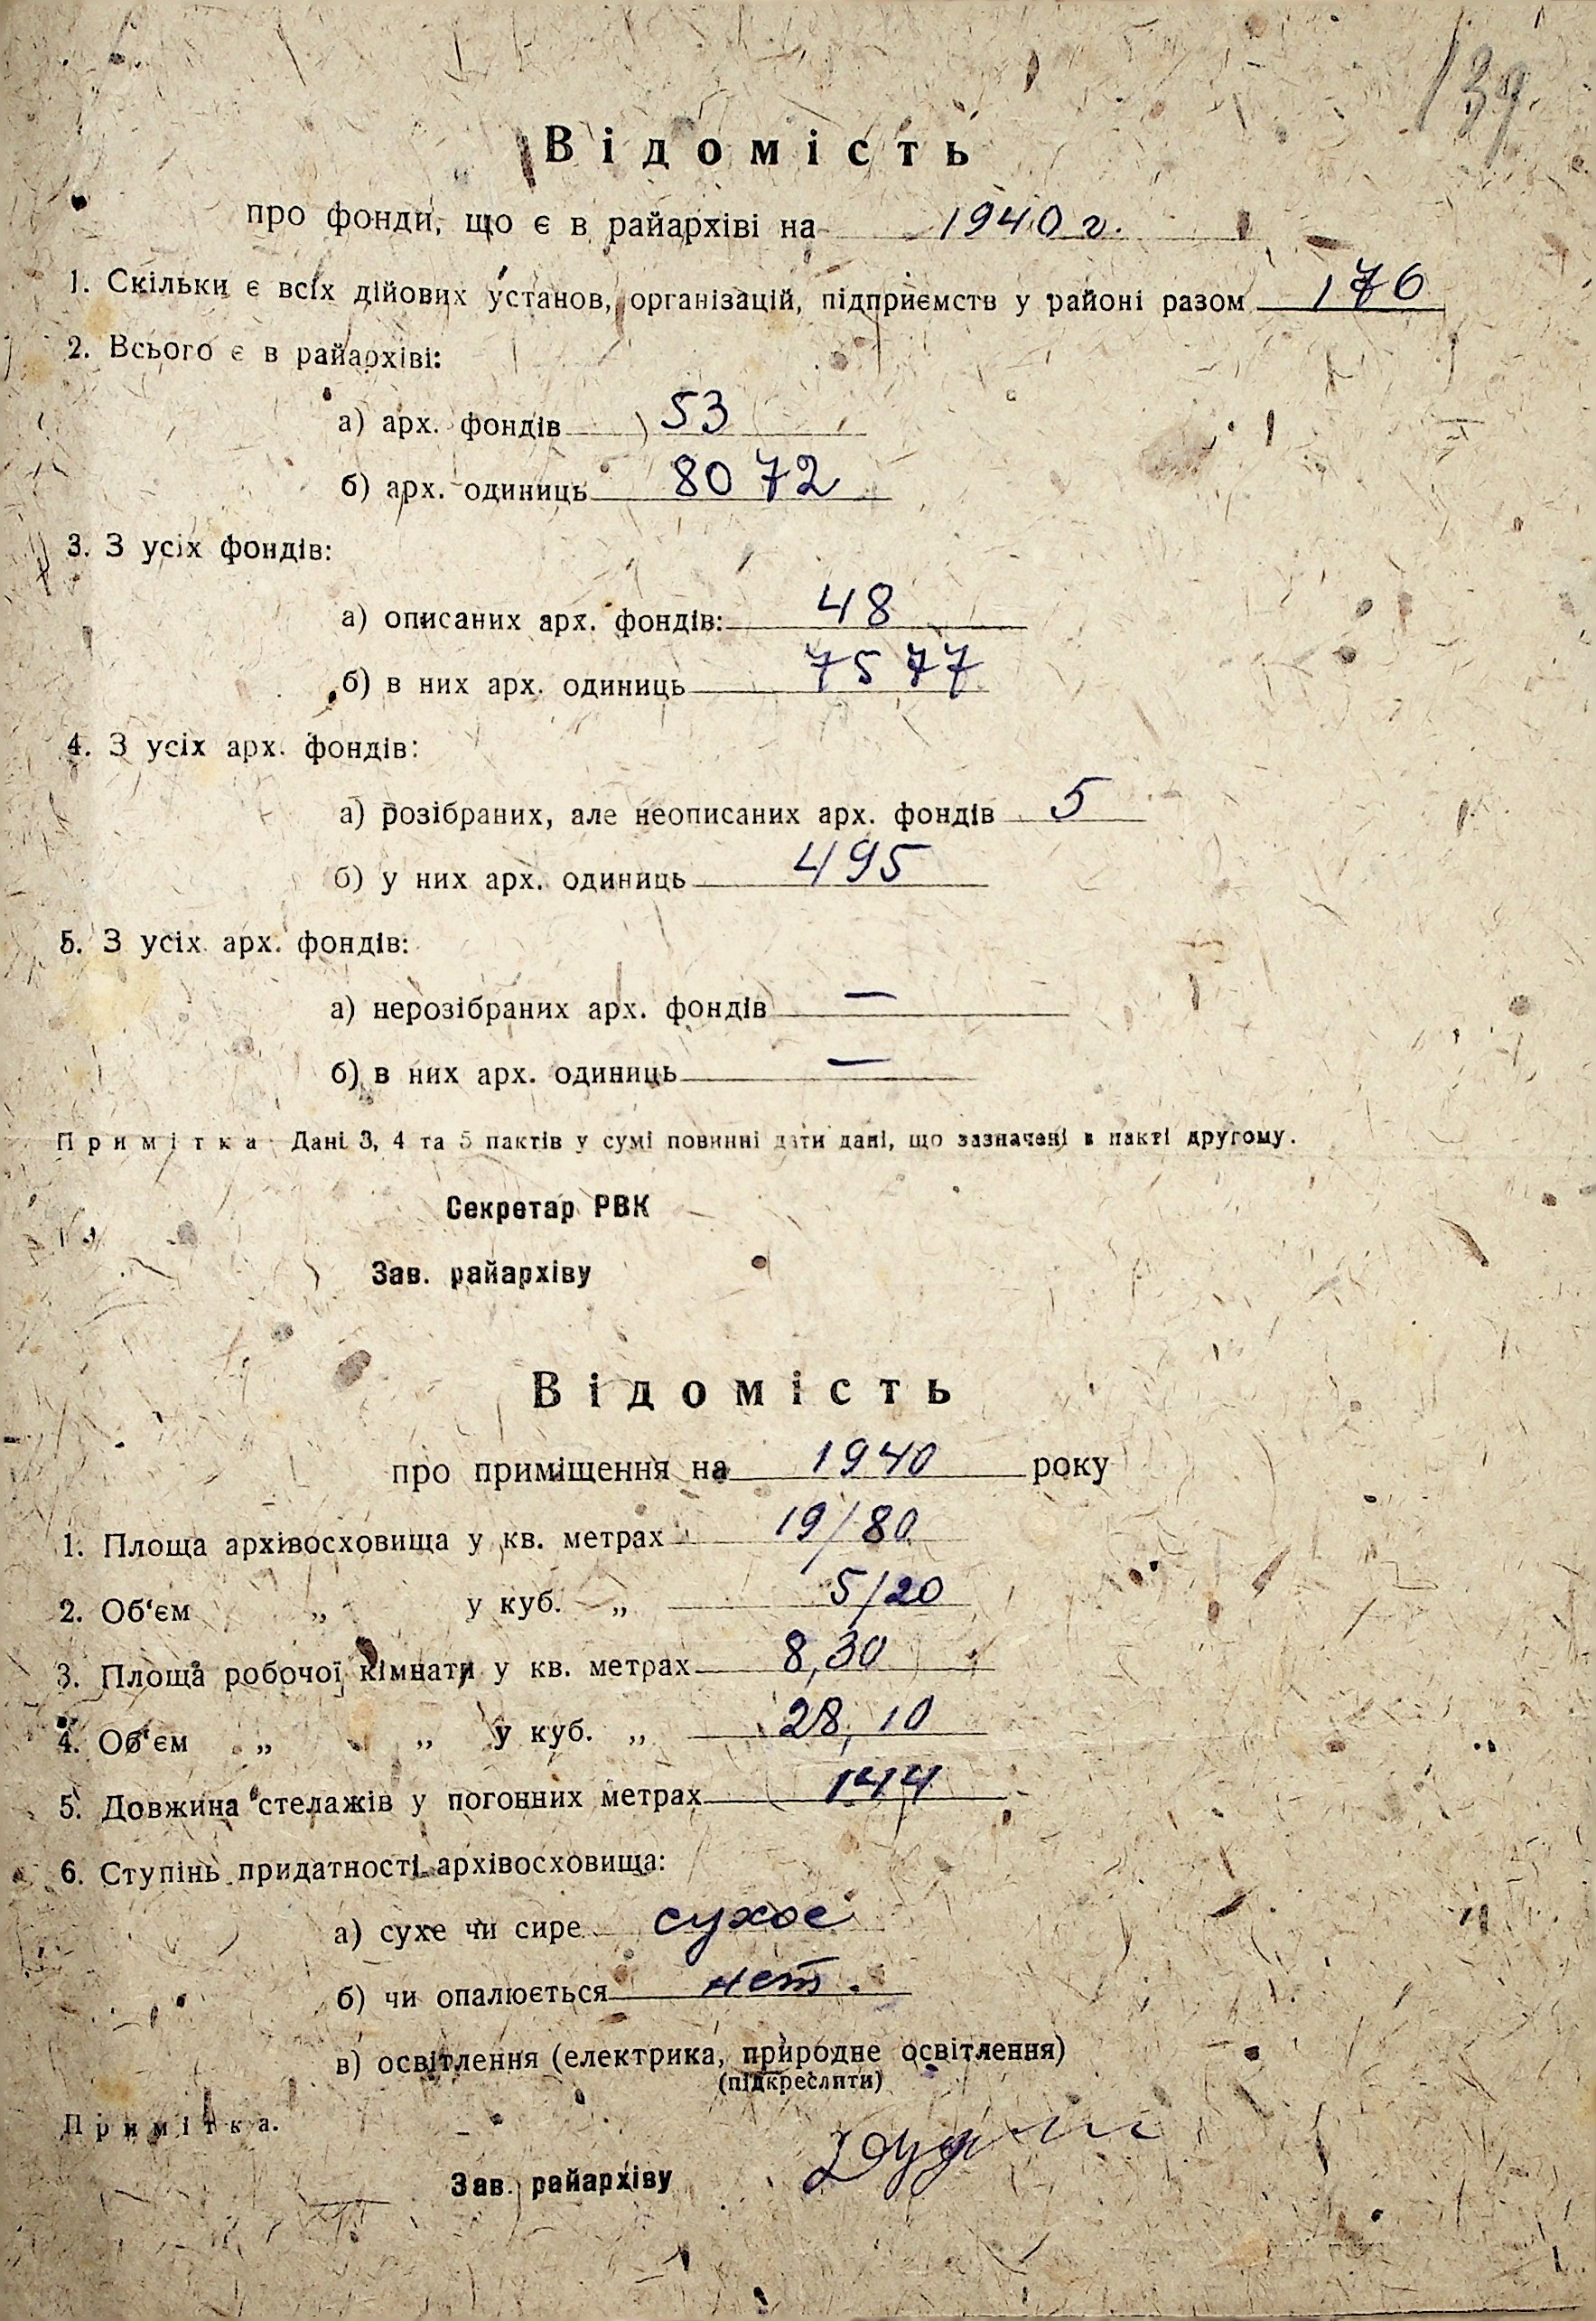 139.
Відомість
про фонди, що є в райархіві на 1940 г.
1. Скільки є всіх дійових установ, організацій, підприємств у районі разом 176
2. Всього є в райархіві:
а) арх. фондів 53
б) арх. одиниць 8072
3. З усіх фондів:
а) описаних арх. фондів: 48
б) в них арх. одиниць 7577
4. З усіх арх. фондів:
а) розібраних, але неописаних арх. фондів 5
б) у них арх. одиниць 495
5. З усіх арх. фондів:
а) нерозібраних арх. фондів —
б) в них арх. одиниць —
Примітка Дані 3, 4 та 5 пактів у сумі повинні дати дані, що зазначені в пакті другому.
Секретар РВК
Зав. райархіву
Відомість
про приміщення на 1940 року
1. Площа архівосховища у кв. метрах 19/80
2. Об‘єм „ у куб. „ 5/20
3. Площа робочої кімнати у кв. метрах 8,30
4. Об‘єм „ „ у куб. „ 28,10
5. Довжина стелажів у погонних метрах 144
6. Ступінь придатності архівосховища:
а) сухе чи сире сухое
б) чи опалюється нет.
в) освітлення (електрика, природне освітлення)
(підкреслити)
Примітка.
Зав. райархіву